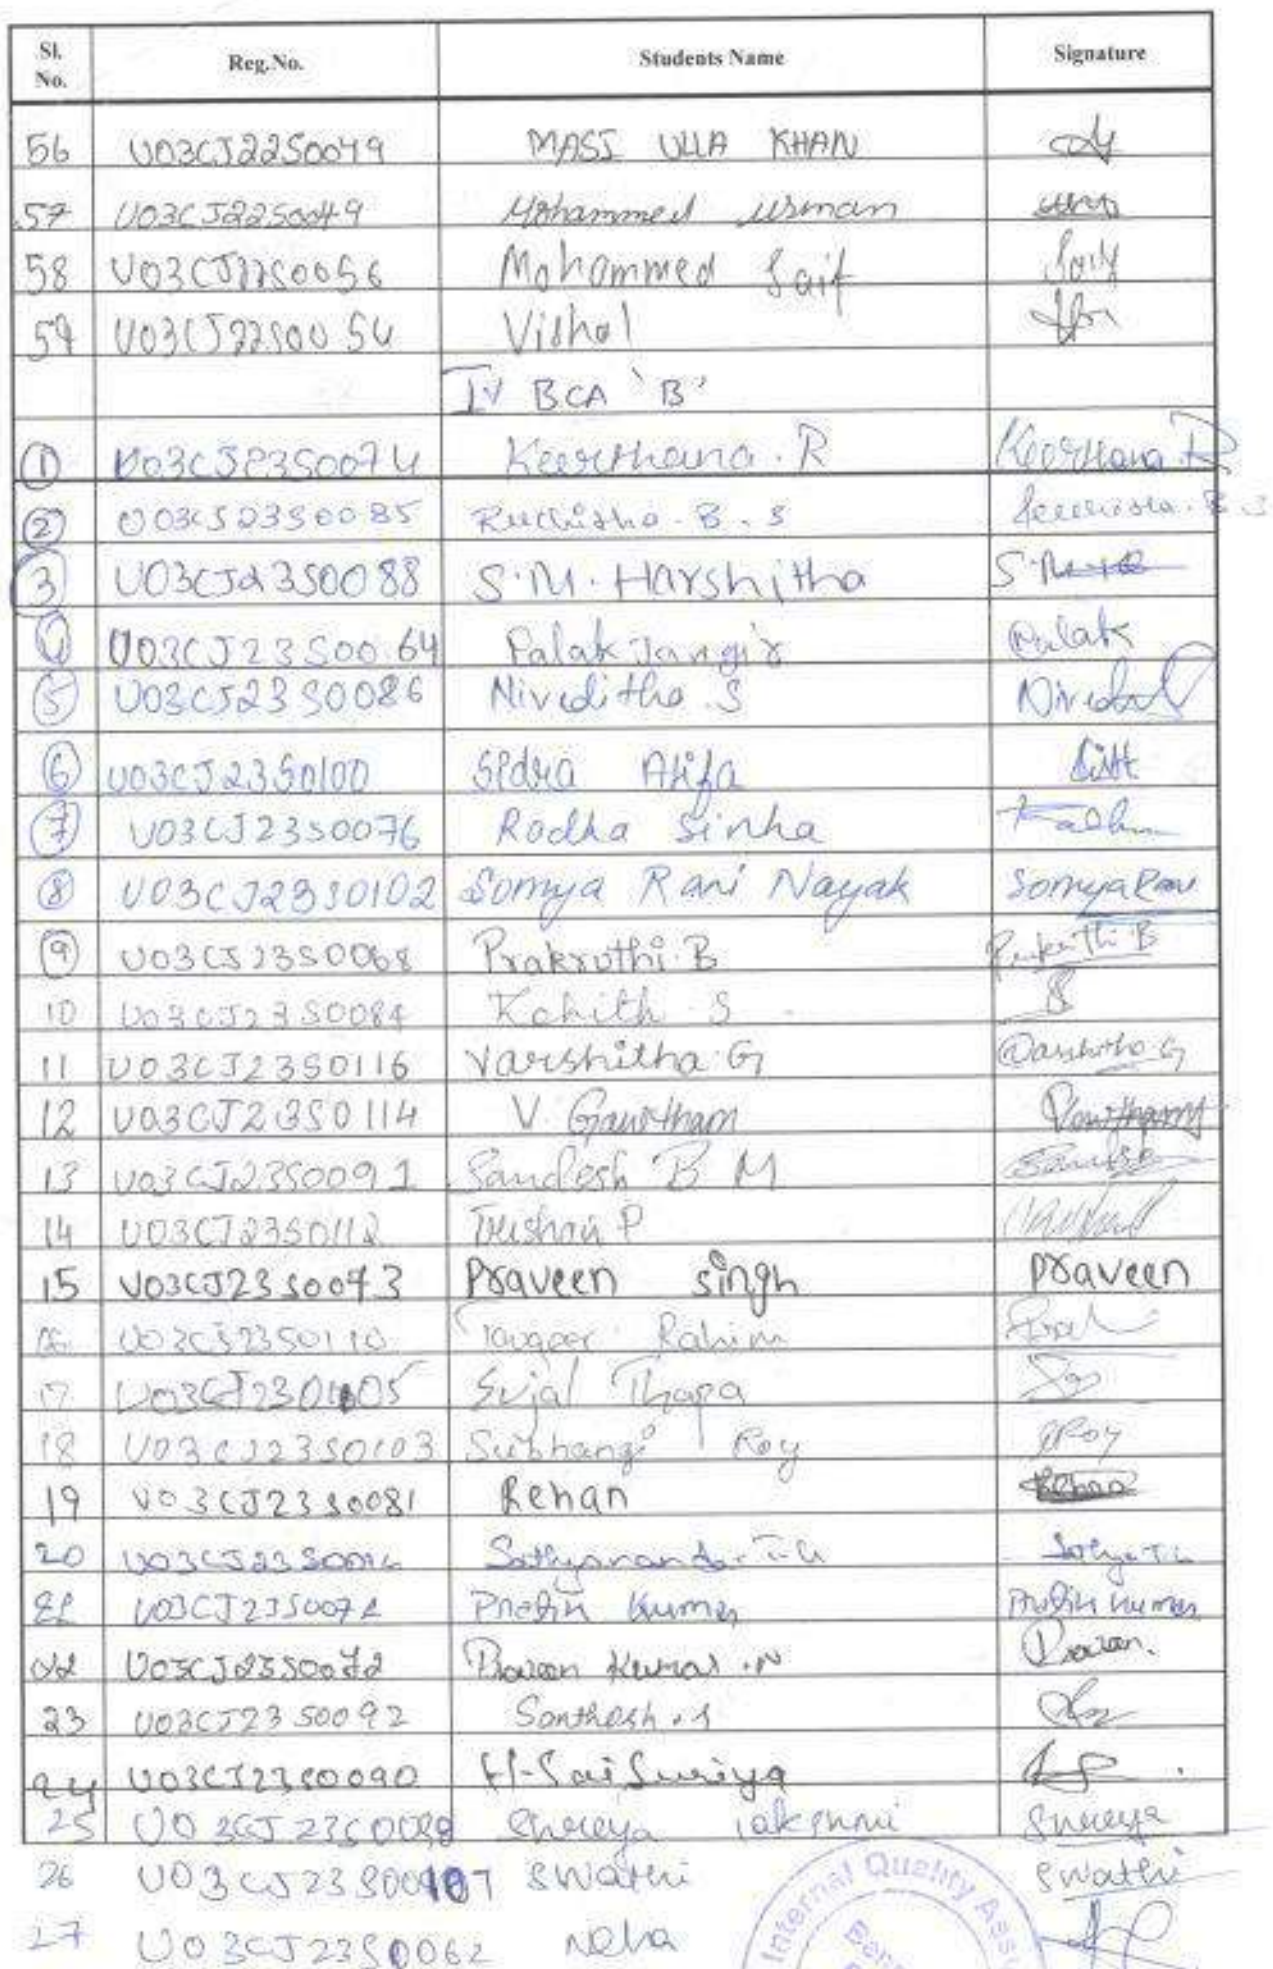 Sl. No. Reg.No. Students Name Signature
56 U03CJ22S0049 MASI ULLA KHAN
57 U03CJ22S0049 Mohammed usman
58 U03CJ22S0056 Mohammed Saif Saif
59 U03CJ22S0054 Vishal
IV BCA 'B'
1 U03CJ23S0074 Keerthana. R Keerthana. R
2 U03CJ23S0085 Ruchitha. B. S
3 U03CJ23S0088 S.M. Harshitha S.M
4 U03CJ23S0064 Palak Jangir Palak
5 U03CJ23S0086 Niveditha. S
6 U03CJ23S0100 Sidra Atifa
7 U03CJ23S0076 Radha Sinha
8 U03CJ23S0102 Somya Rani Nayak Somya Rani
9 U03CJ23S0068 Prakruthi. B Prakruthi B
10 U03CJ23S0084 S
11 U03CJ23S0116 Varshitha. G Varshitha. G
12 U03CJ23S0114 V. Gowtham
13 U03CJ23S0091 Sandesh B M
14 U03CJ23S0112 P
15 U03CJ23S0073 Praveen Singh Praveen
16 U03CJ23S0110 Rahim
17 Sujal Thapa
18 U03CJ23S0103 Subhangi Roy Roy
19 U03CJ23S0081 Rehan Rehan
20 Sathyananda
21 Kumar Kumar
22 U03CJ23S0072 Kumar .N
23 U03CJ23S0092 Santhosh. S
24 U03CJ23S0090 H. Sai Suriya
25 Shreya Lakshmi Shreya
26 Swathi Swathi
27 U03CJ23S0062 Neha
Internal Quality